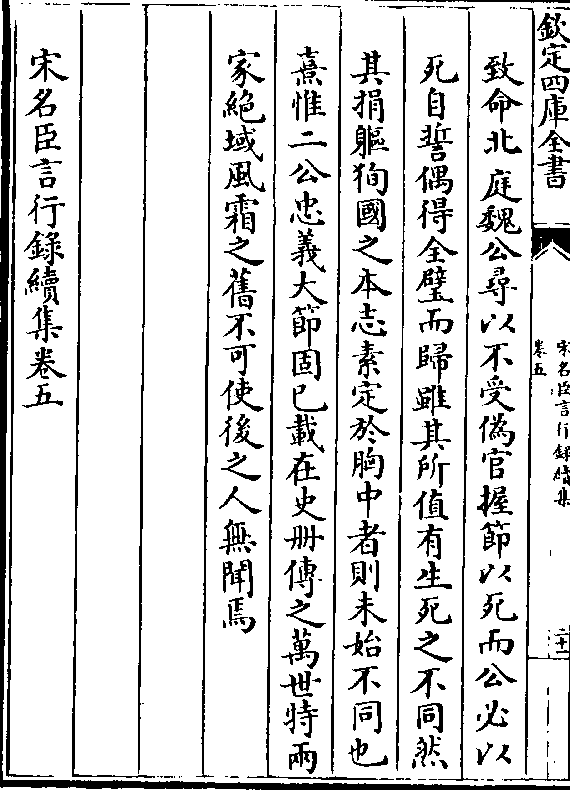 欽定四庫全書
宋名臣言行録續集
卷五
二十一
致命北庭魏公尋以不受偽官握節以死而公必以
死自誓偶得全璧而歸雖其所值有生死之不同然
其捐軀狥國之本志素定於胸中者則未始不同也
熹惟二公忠義大節固已載在史冊傳之萬世特兩
家絶域風霜之舊不可使後之人無聞焉
宋名臣言行錄續集卷五